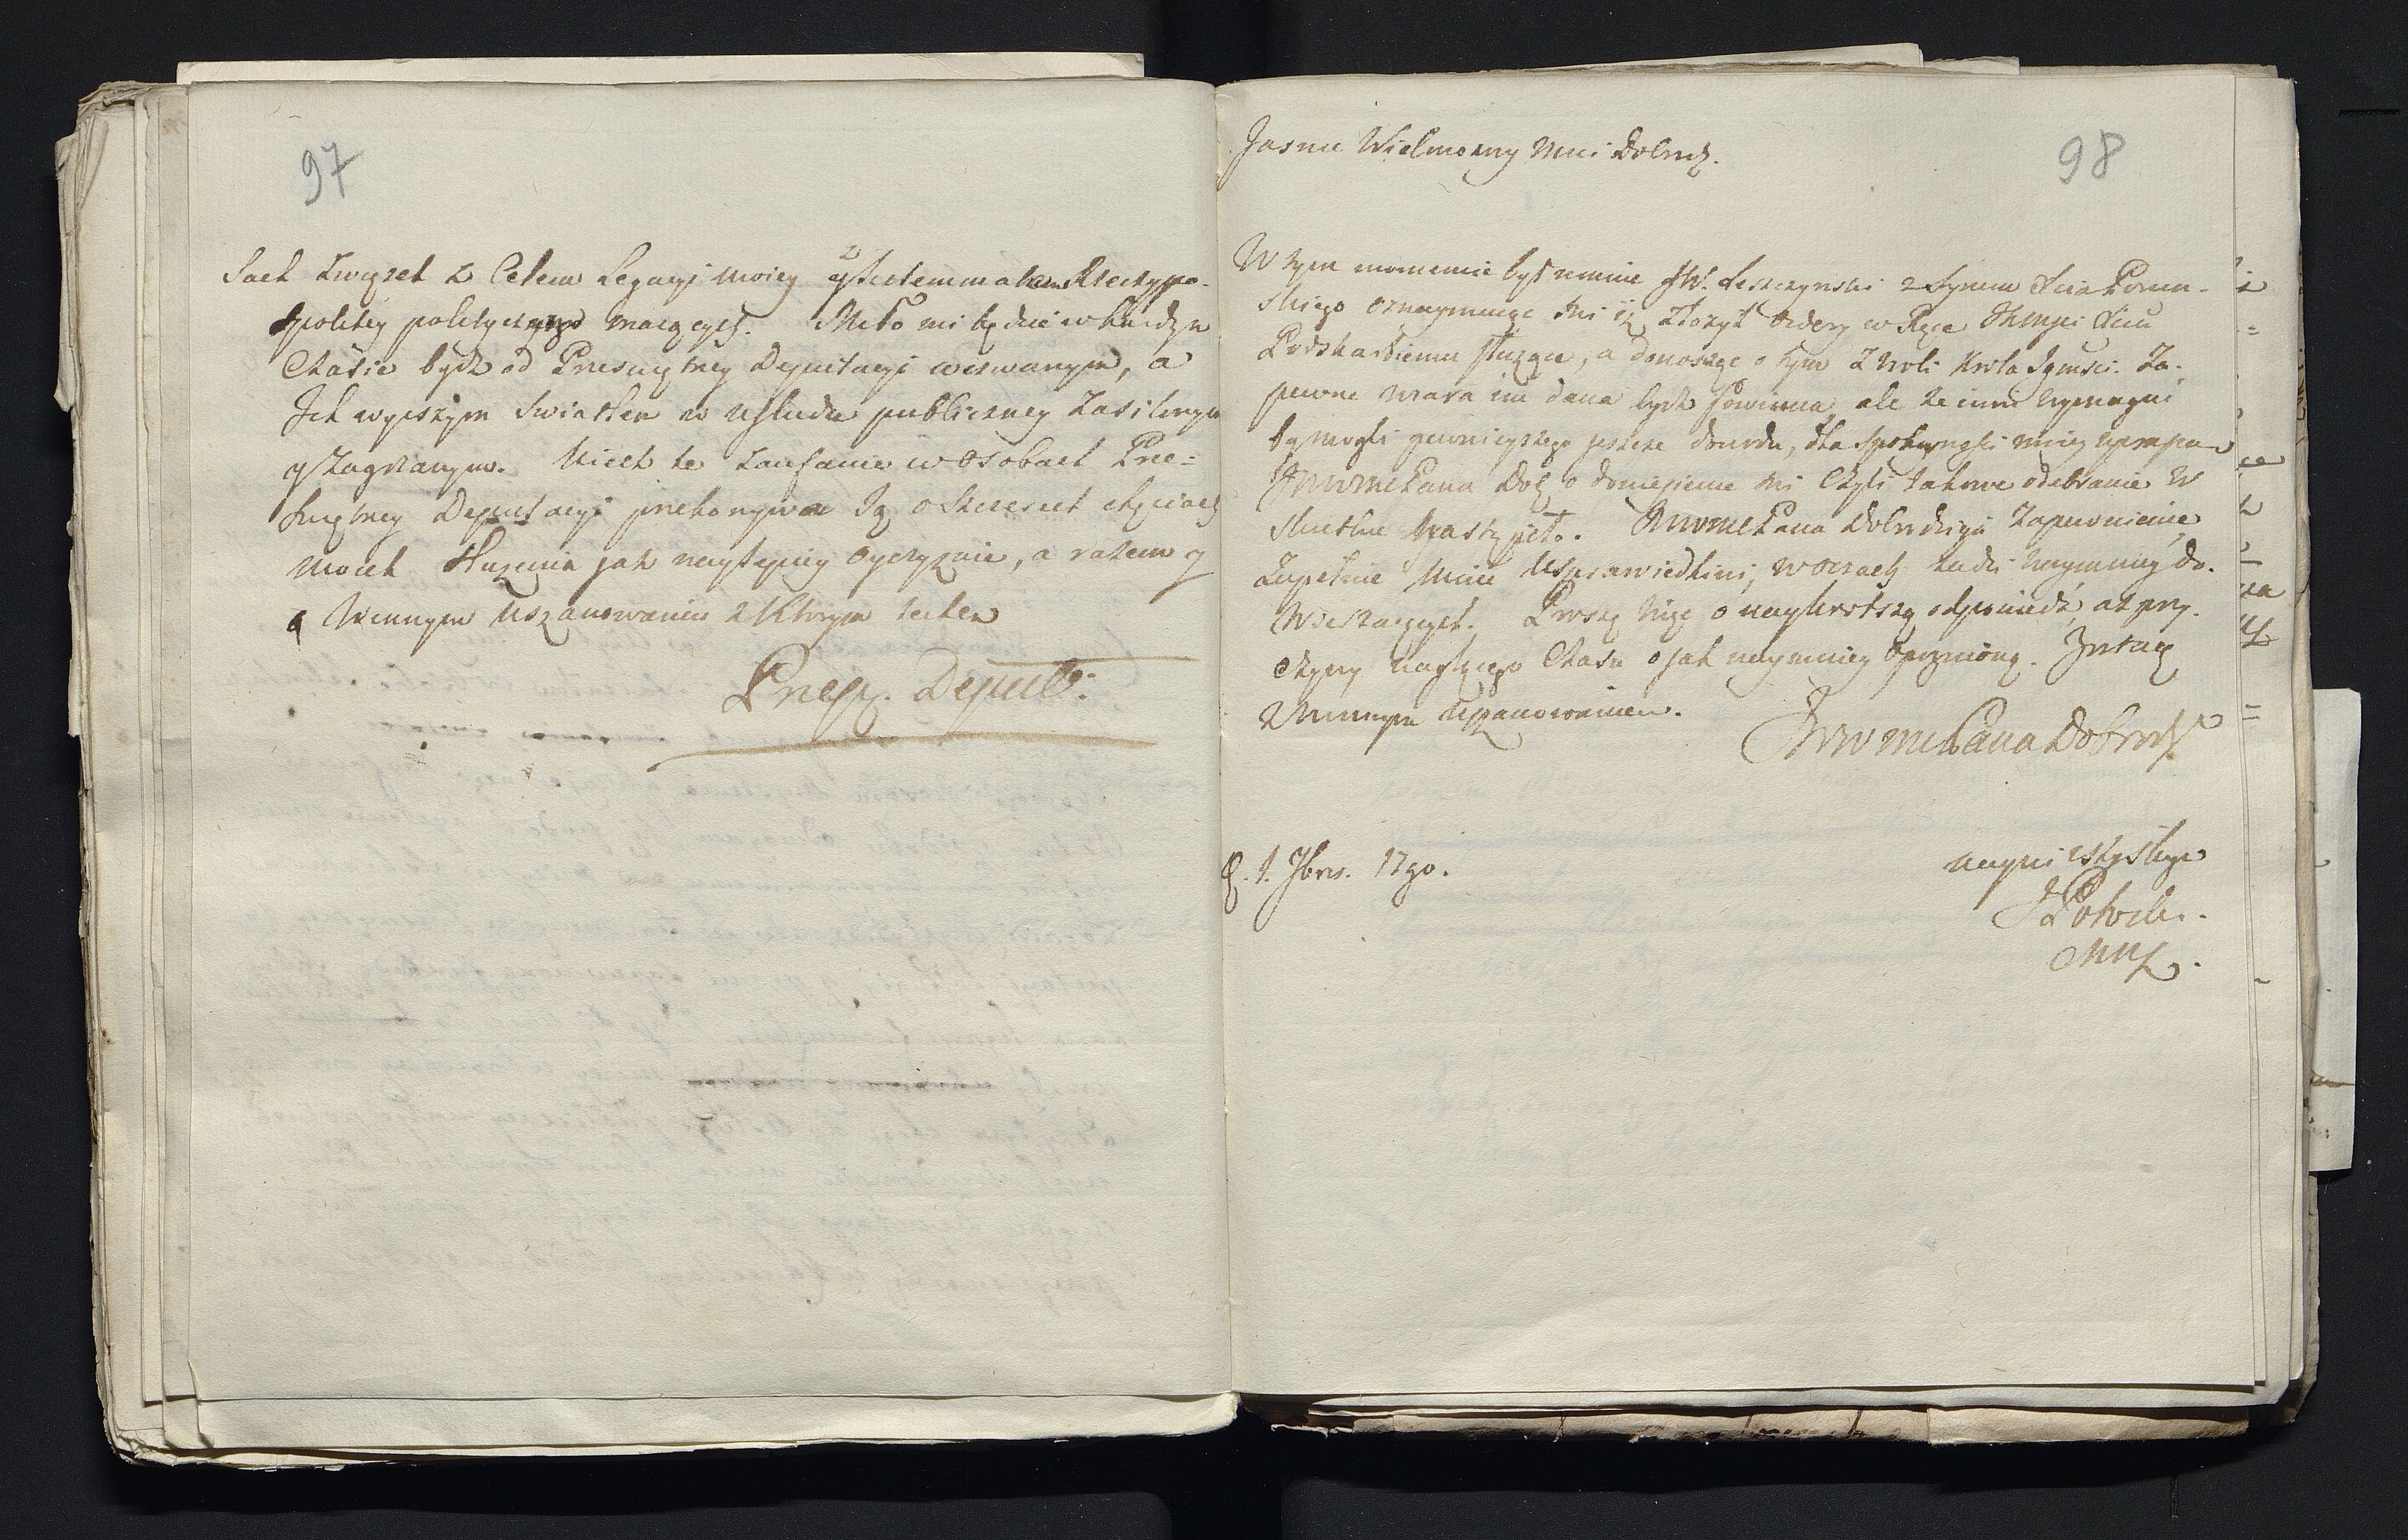 97
Sach Związek z Celem Legacyi moiey y Systemmatem Rzeczypo-
spolitey politycznym maiących. Miło mi będzie w każdym
Czasie bydź od Przeświętney Deputacyi wezwanym, a
Jch wyższym Swiatłem w usłudze publiczney Zasilonym
y Zagrzanym. Niech te zaufanie w Osobach Prze=
świętney Deputacyi przekonywa Ją o szczerech chęciach
moich służenia jak naylepiey Oyczyznie, a razem y
o Winnym Uszanowaniu z Którym iestem
Przeyś. Deput:
98
Jasnie Wielmożny Mci Dobrodz.
W tym momencie był u mnie JW. Leszczynski z Synem Xcia Ponin-
skiego oznaymuiąc mi iż złożył Ordery w Ręce Xciu
Podskarbiemu służące, a donosząc o tym z woli Krola Jgmsci. Za-
pewne wiara im dana bydź powinna ale że inni wymagać
by mogli pewnieyszego jeszcze dowodu, dla spokoyności moiey upraszam
JWWMPana Dob o doniesienie mi Czyli takowe odebranie w
skutku nastąpiło. JWWMPana Dobrodzieja Zapewnienie
Zupełnie mnie usprawiedliwi, w oczach ludzi naymniey do-
wierzaiących. Proszę więc o naykrotszą odpowiedź, a przy-
czyny naglącego Czasu o jak naymniey Opoznioną. Zostaię
z Winnym Uszanowaniem.
JWWMPana Dobrodz.
D. 1. 7bris. 1790.
nayniższy sługa
J Potocki.
MNL.